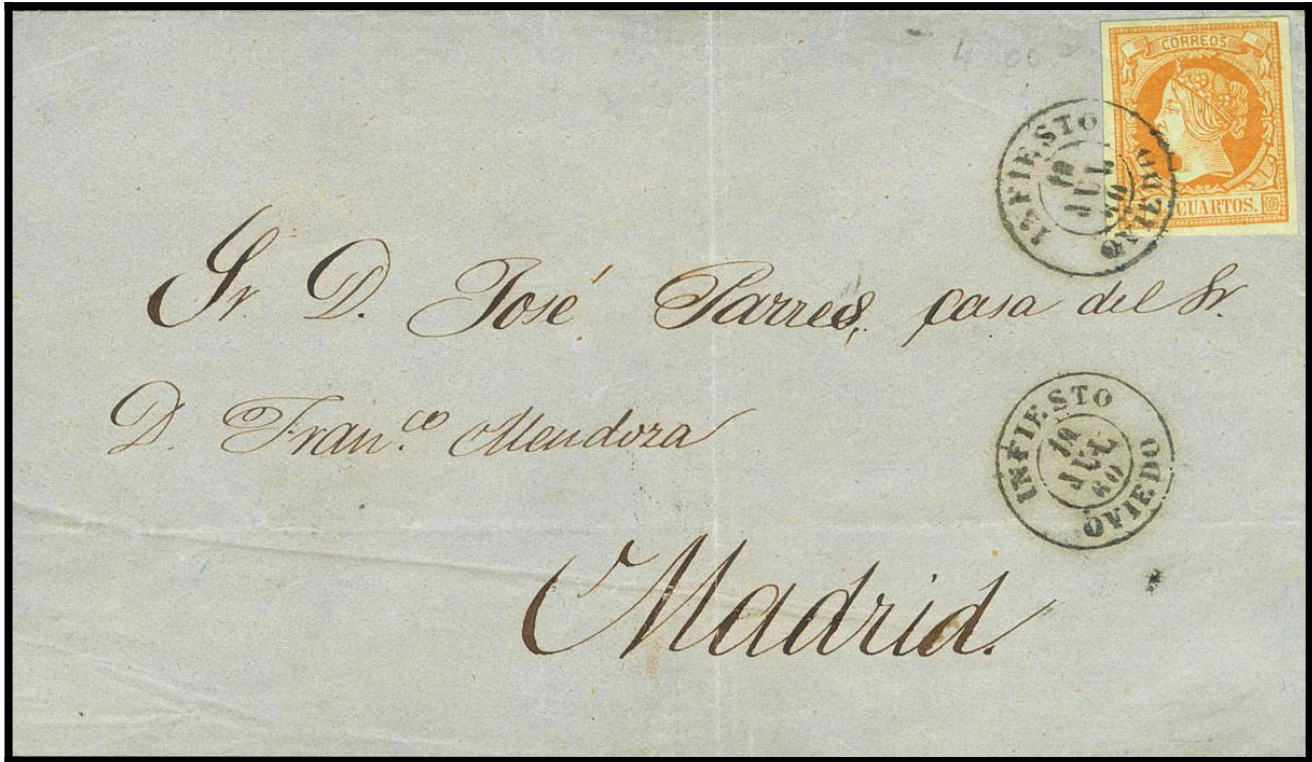 4 00
CORREOS
CUARTOS.
INFIESTO
JUL
60
OVIEDO
Sr. D. José Parres, Casa del Sr.
D. Fran.co Mendoza
INFIESTO
JUL
60
OVIEDO
Madrid.